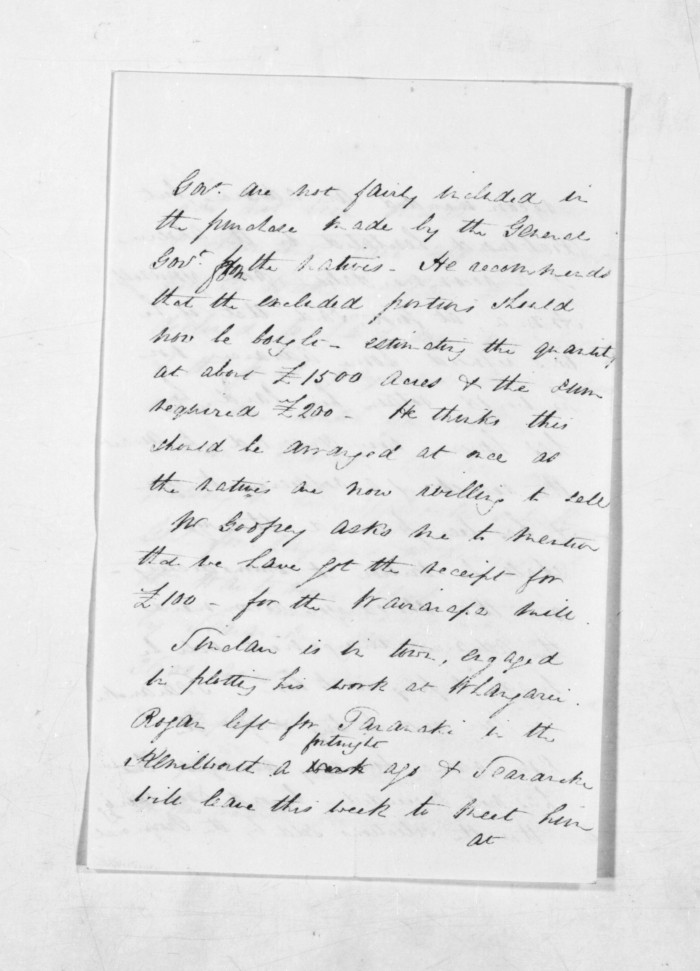 Govt. are not fairly included in
the purchase made by the General
Govt. from the natives - He recommends
that the excluded portions should
now be bought - estimating the quantity
at about £1500 acres & the sum
required £200 - He thinks this
should be arranged at once as
the natives are now willing to sell
Mr Goofrey asks me to mention
that we have got the receipt for
£100 - for the Wairarapa mill.
Sinclair is in town, engaged
in plotting his work at Whangarei.
Rogan left for Taranaki in the
fortnight
Kenilworth a week ago & Searancke
will leave this week to meet him
at